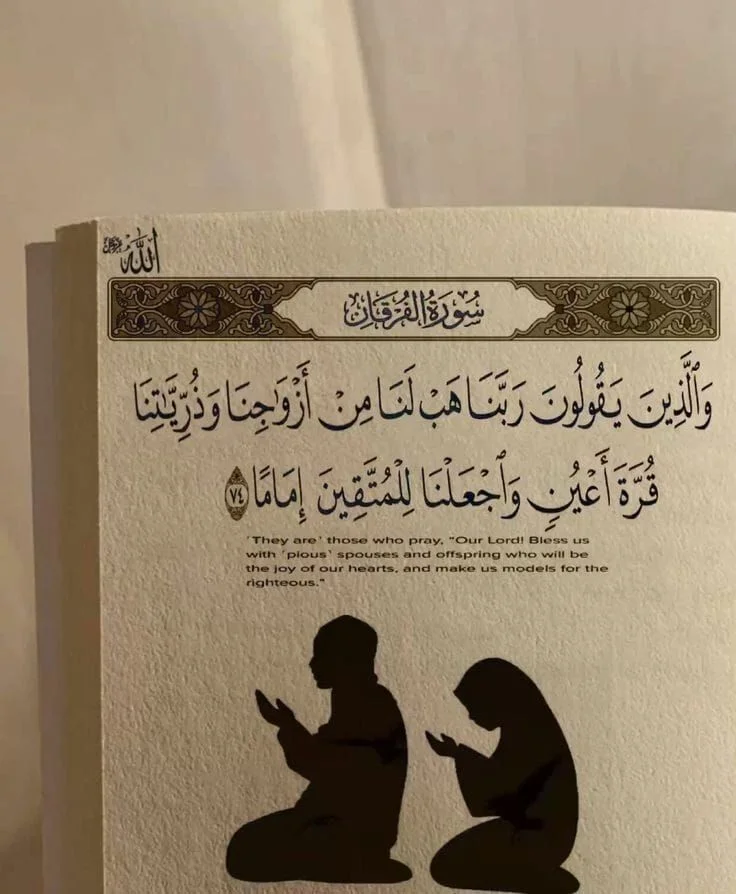 الله
سُورَةُ الفُرْقَانِ
وَٱلَّذِينَ يَقُولُونَ رَبَّنَا هَبْ لَنَا مِنْ أَزْوَٰجِنَا وَذُرِّيَّـٰتِنَا
قُرَّةَ أَعْيُنٍ وَٱجْعَلْنَا لِلْمُتَّقِينَ إِمَامًا ٧٤
˹They are˺ those who pray, "Our Lord! Bless us
with ˹pious˺ spouses and offspring who will be
the joy of our hearts, and make us models for the
righteous."